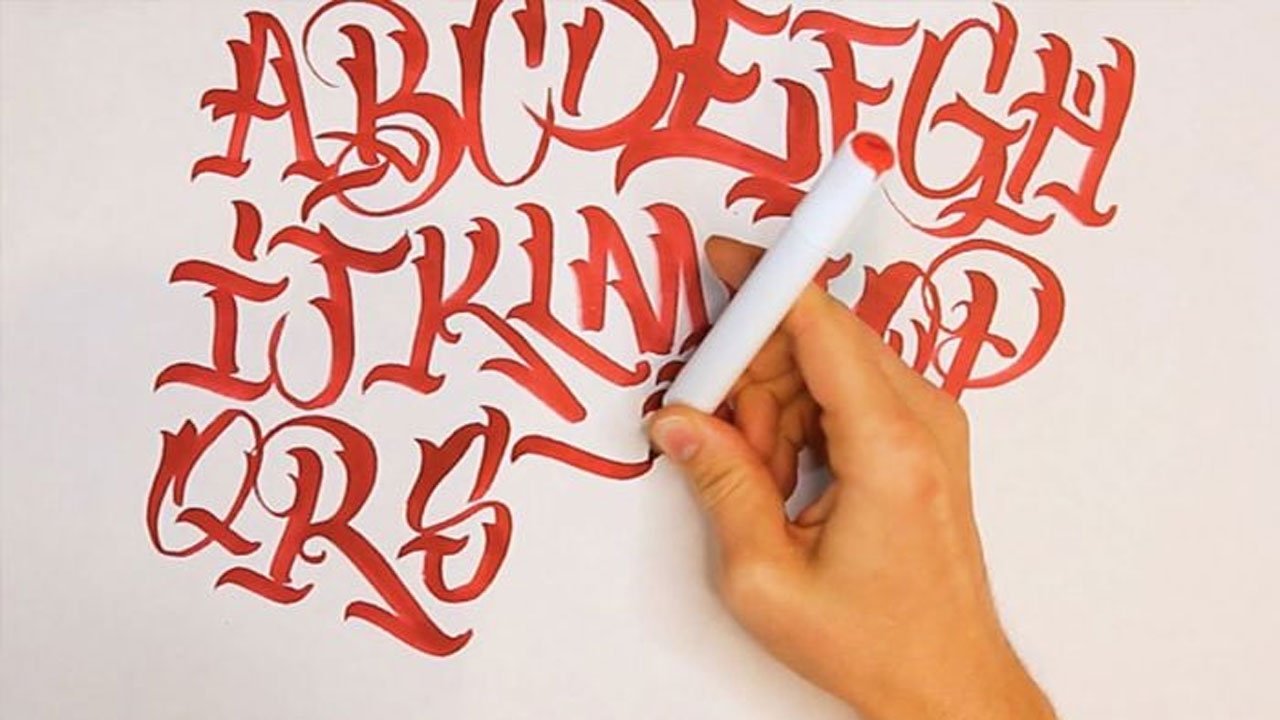 ABCDEFGH
iJKLM OP
QRS